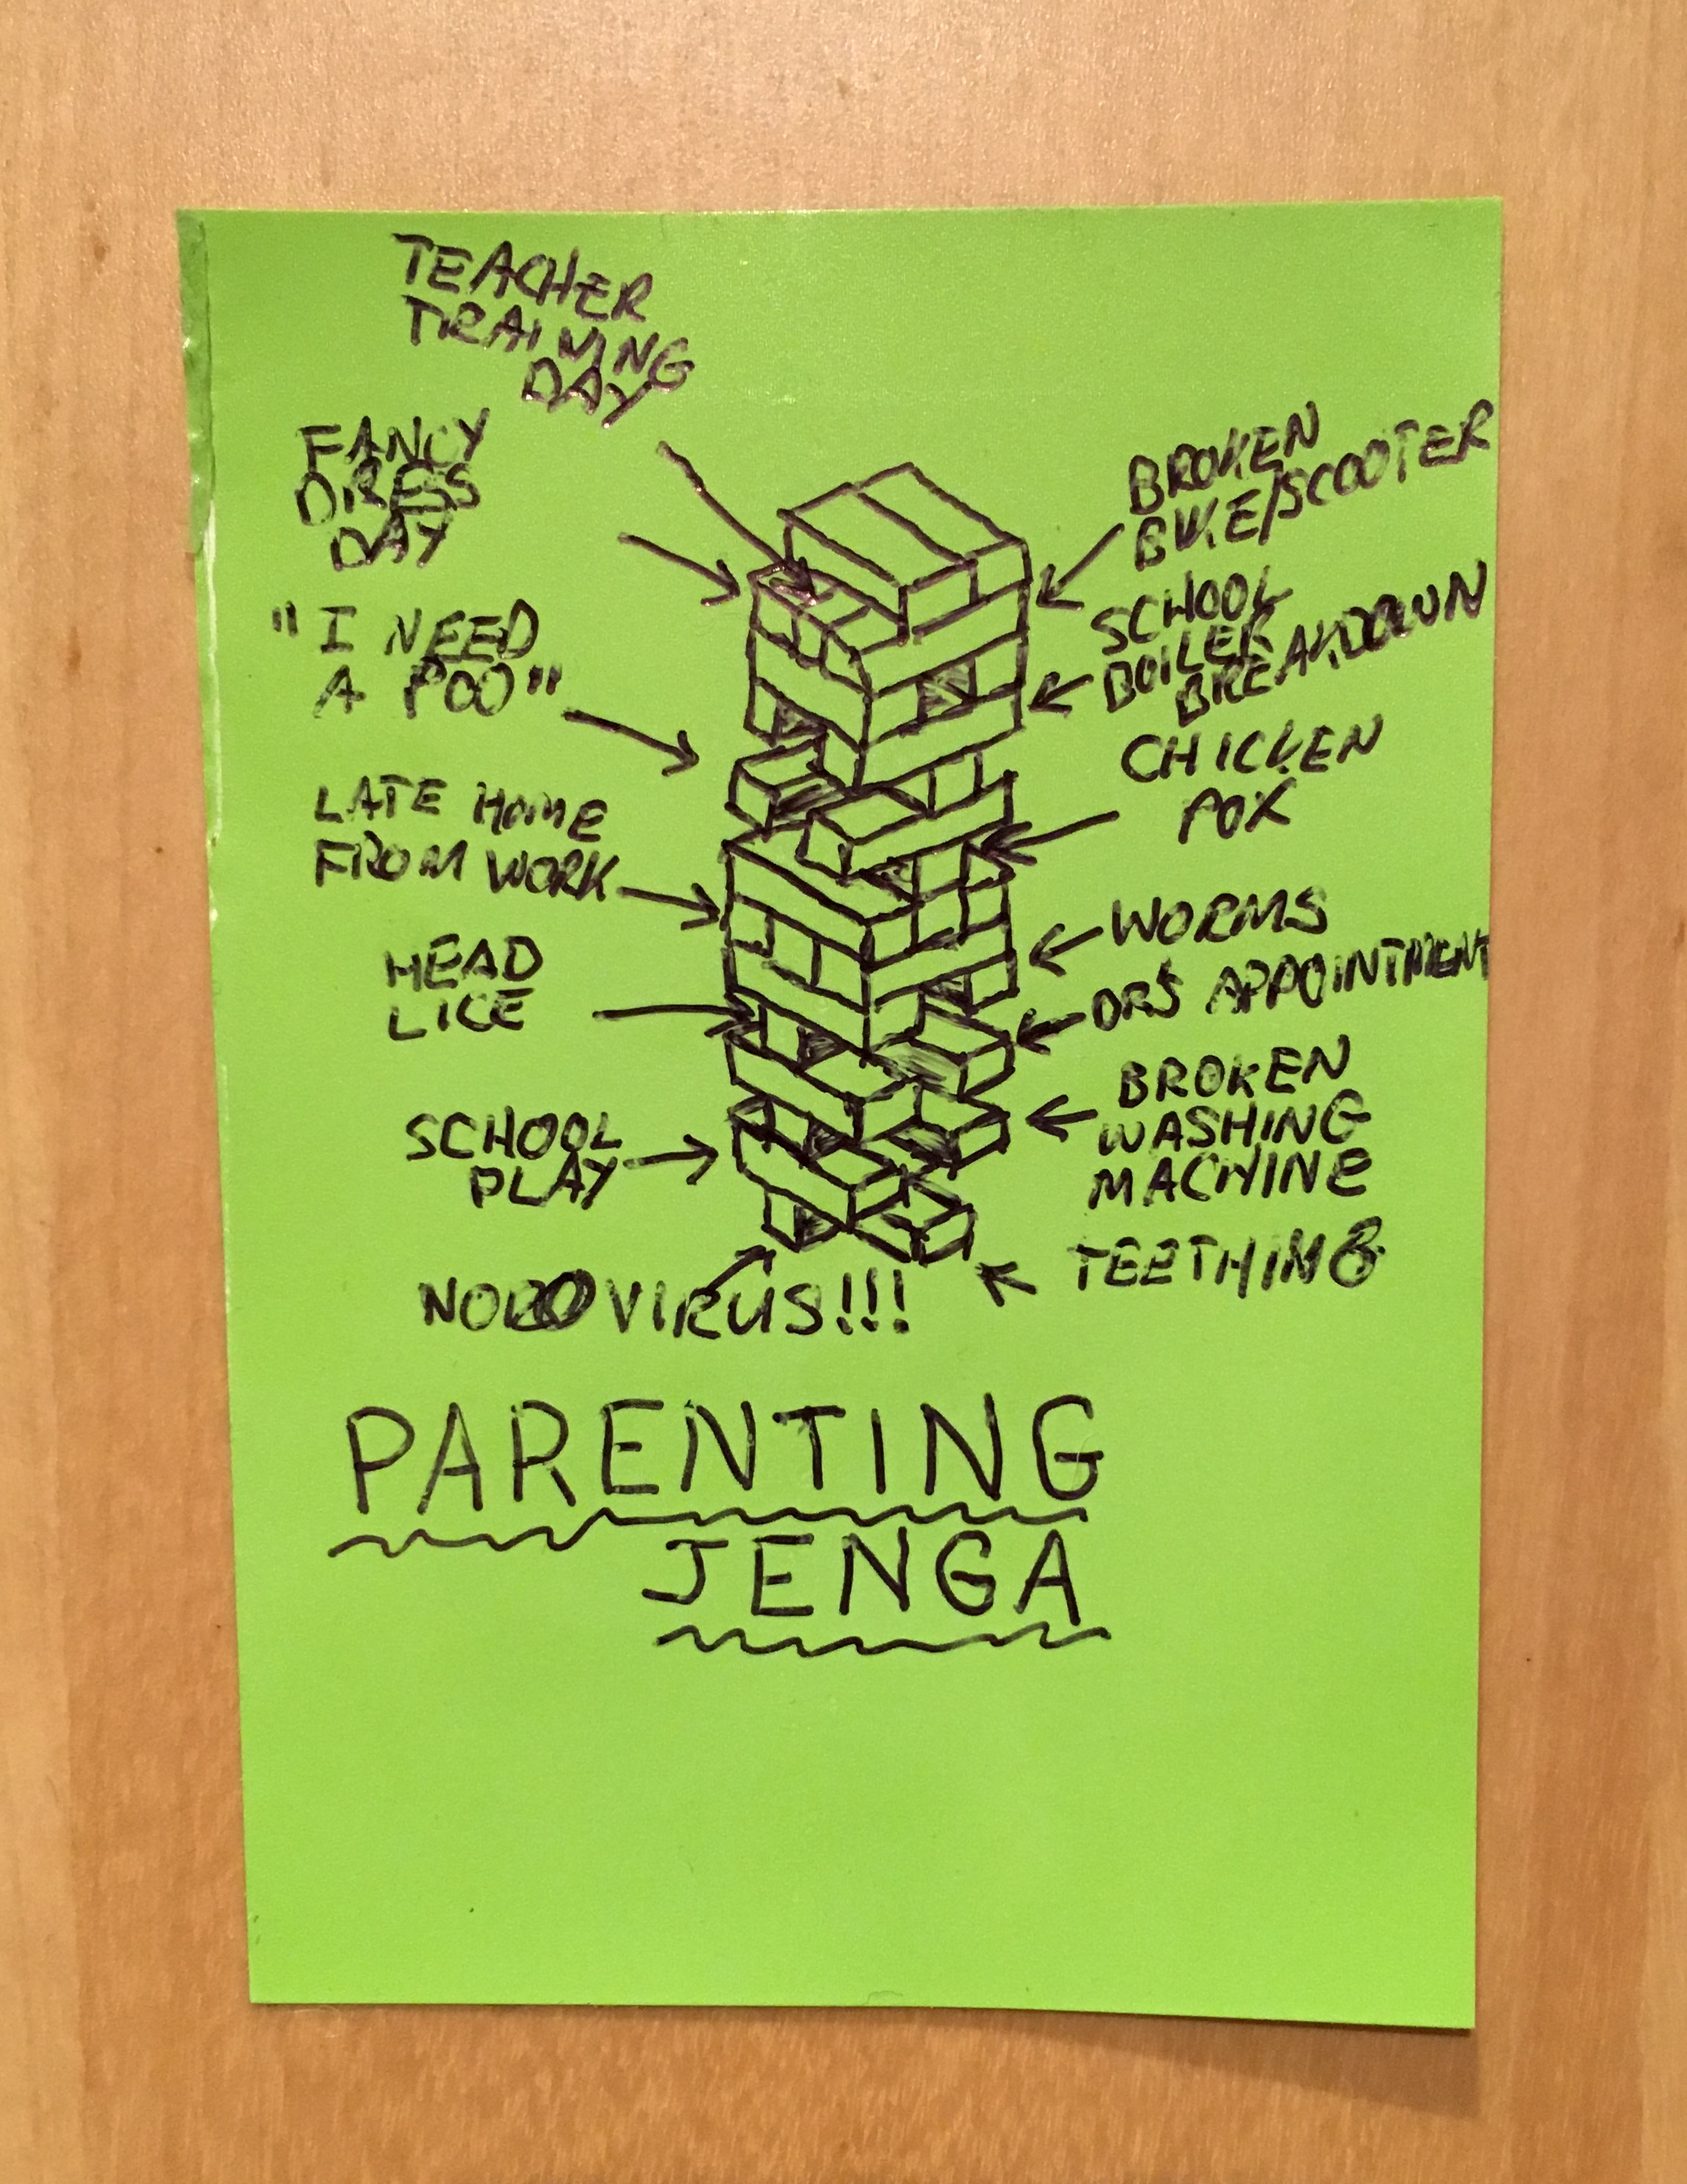 TEACHER
TRAINING
DAY
FANCY
DRESS
DAY
"I NEED
A POO"
LATE HOME
FROM WORK
HEAD
LICE
SCHOOL
PLAY
NOROVIRUS!!!
BROKEN
BIKE/SCOOTER
SCHOOL
BOILER
BREAKDOWN
CHICKEN
POX
WORMS
DRS APPOINTMENT
BROKEN
WASHING
MACHINE
TEETHING
PARENTING
JENGA